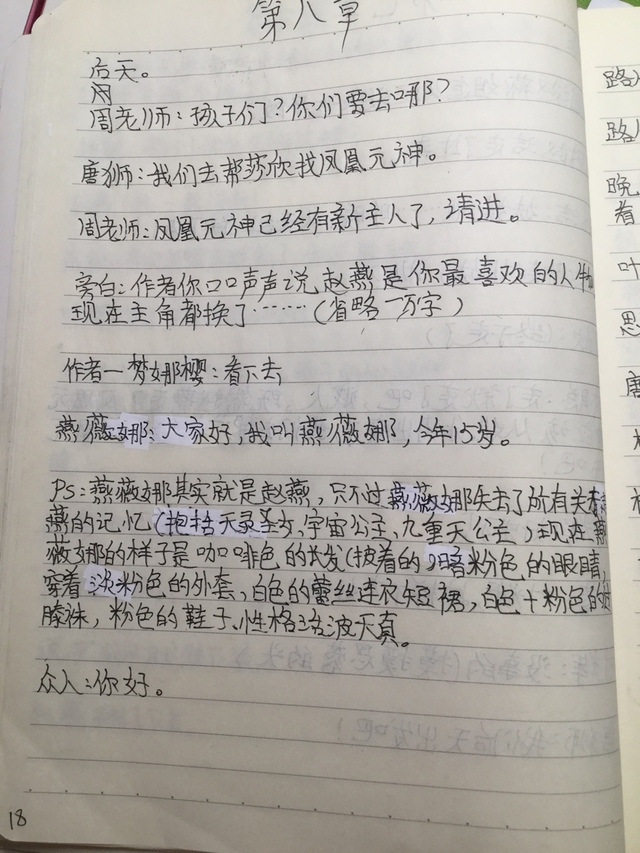 第八章
后天。
周老师:孩子们?你们要去哪?
唐狮:我们去帮莎欣找凤凰元神。
周老师:凤凰元神已经有新主人了,请进。
旁白:作者你口口声声说赵燕是你最喜欢的人物
现在主角都换了……(省略一万字)
作者—梦娜樱:看下去
燕薇娜:大家好,我叫燕薇娜,今年15岁。
PS:燕薇娜其实就是赵燕,只不过燕薇娜失去了所有关
燕的记忆(抱括天灵圣女、宇宙公主、九重天公主)现在燕
薇娜的样子是咖啡色的长发(披着的)暗粉色的眼睛,
穿着淡粉色的外套,白色的蕾丝连衣短裙,白色+粉色的
膝袜,粉色的鞋子、性格活波天真。
众人:你好。
18
路
路
晚
着
叶
思
唐